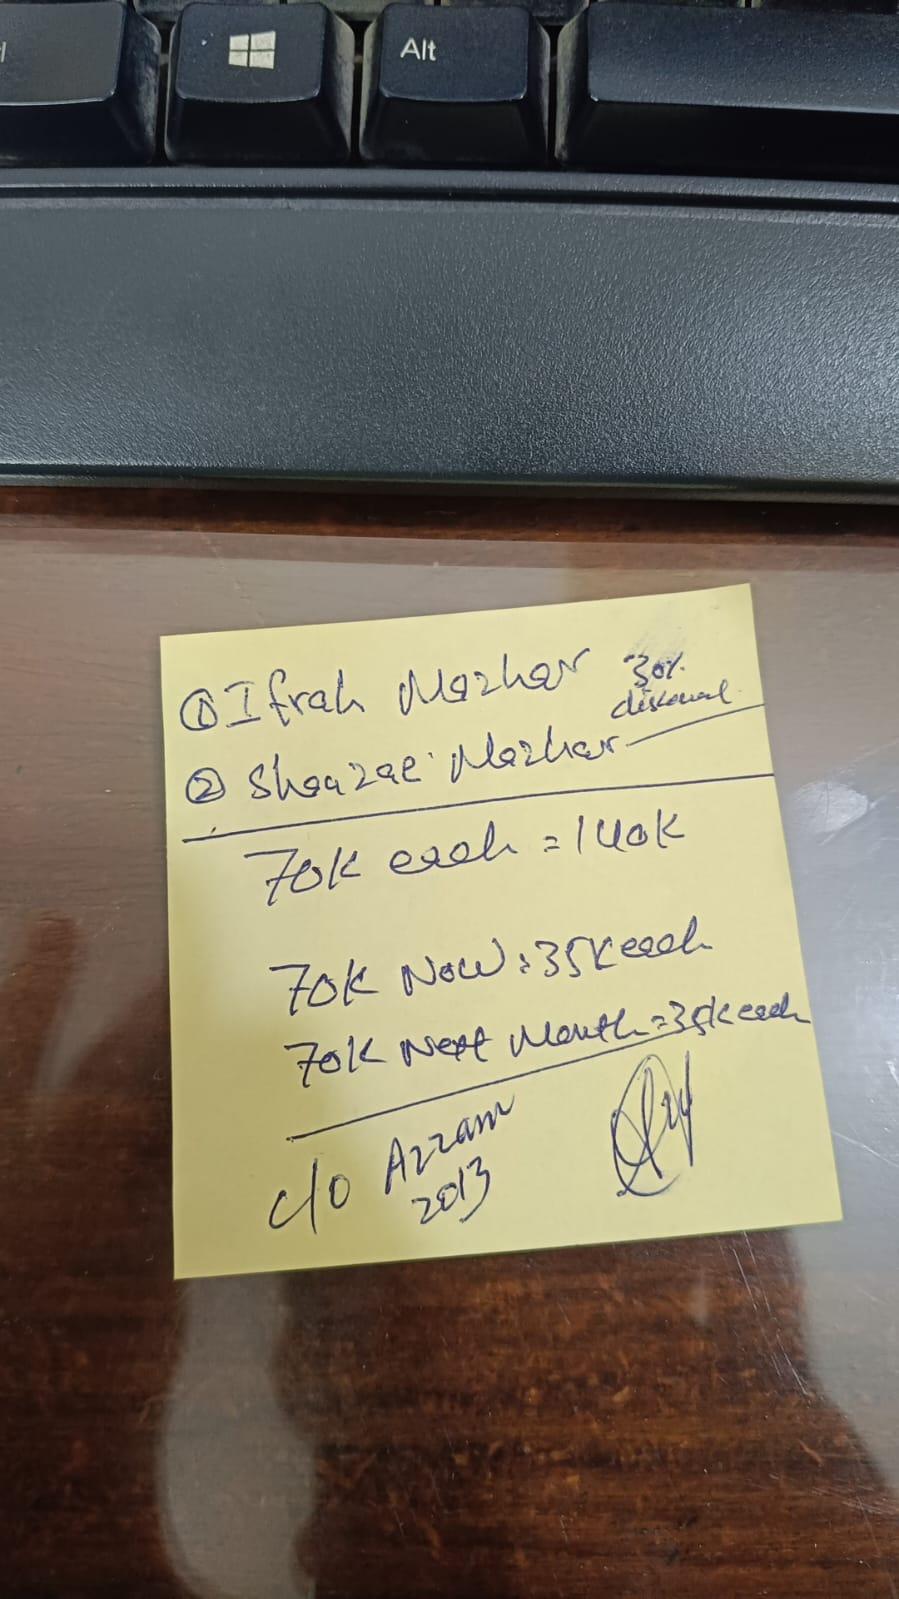 Alt
① Ifrah Mazhar 30%
discount
② Shanzae Mazhar
70K each = 140K
70K Now = 35K each
70K Next Month = 35K each
c/o Azzam
2013